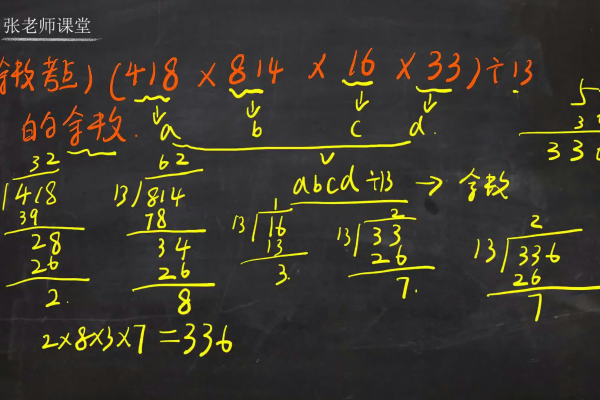 张老师课堂
余数考点) (418 × 814 × 16 × 33) ÷ 13
的余数.
a b c d.
abcd ÷ 13 → 余数
32
418
39
28
26
2.
62
13 814
78
34
26
8
1
13 16
13
3.
2
13 33
26
7.
2
13 336
26
7
2×8×3×7 = 336